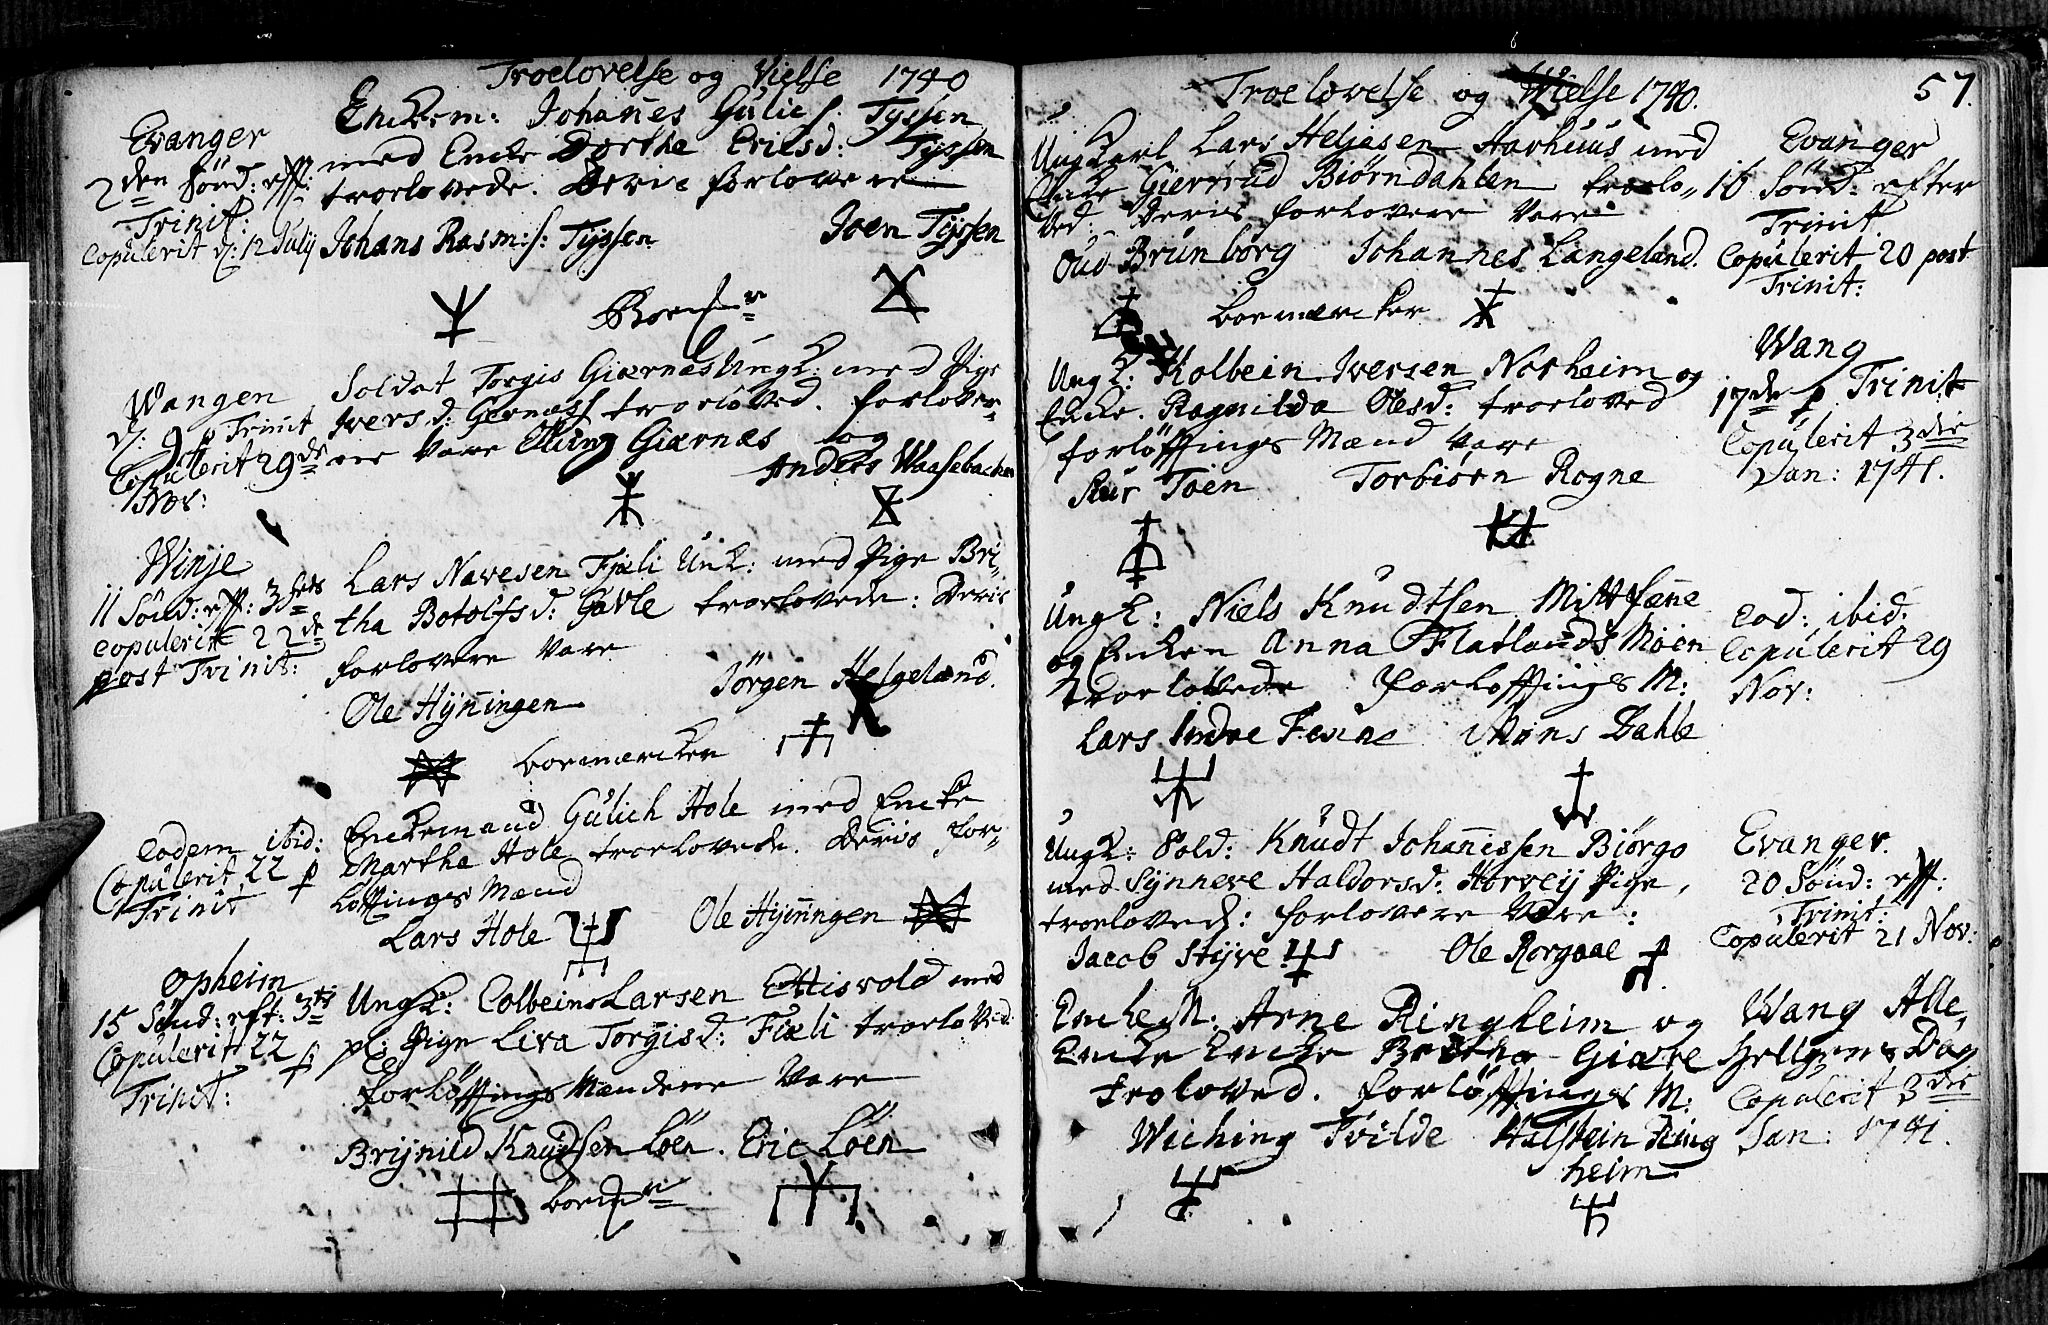 Troelovelse og Vielse 1740
Evanger
2den Sönd: eff:
Trinit:
Copulerit d: 12 Julij
Enckem: Johan̄es Gulic s. Tyssen
med Encke Dorthe Ericsd: Tyssen
troelovede. Deris forlovere
Johans Rasm:s: Tyssen
Joen Tyssen
Wangen
d: 9 p Trinit
Copulerit 29de
Nov:
Soldat Torgis Giærnes Ungk: med Pige
Iversd: Gernæss troeloved. forlover-
ne vare Elling Giærnæs og
Anders Waasebacken
Winje
11 Sönd: eff: 3 
Copulerit 22de
post Trinit:
Lars Navesen Fjeli Unk: med Pige Bri-
tha Botolfsd: Gavle troelovede: Deris
forlovere vare
Jörgen Helgeland
Ole Hijn̄ingen
boemærcker
Eodem ibid:
Copulerit 22 p
Trinit
Enckemand Gulich Hole med Encke
Martha Hole troelovede. Deris for-
löffnings Mænd
Lars Hole
Ole Hijn̄ingen
Opheim
15 Sönd: eft: 3tis
Copulerit 22 p
Trinit:
Ungk: Colbein Larsen Ettisvold med
Pige Liva Torgisd: Fieli troeloved
forlöffnings Mændene vare
Brijnild Knudsen Löen. Eric Löen
Troelovelse og Vielse 1740. 57.
Ungkarl Lars Heljesen Aarhuus med
Encke Giertrud Biörndahlen troelo-
ved: Deris forlovere vare
Oud Brunborg Johannes Langeland.
boemærcker
Evanger
16 Sönd: efter
Trinit.
Copulerit 20 post
Trinit:
Ungk: Kolbein Iversen Norheim og
Encke. Ragnilda Olesd: troeloved
forlöffnings Mænd vare
Siur Toen Torbiörn Rogne
Wang
17de p Trinit
Copulerit 3die
Jan: 1741.
Ungk: Niels Knudtsen Mittfæne
og Encken Anna Flatlands Moen
troelovede forloffnings M:
Lars Indre Fenne Mons Dahle
Eod: ibid:
Copulerit 29
Nov:
Ungk: Sold: Knudt Johan̄issen Biörgo
med Sÿnneve Haldorsd: Horveij Pige,
troeloved: forlovere vare:
Jacob Stÿve Ole Rorgaae
Evanger.
20 Sönd: eff:
Trinit:
Copulerit 21 Nov:
Encke M: Arne Ringheim og
Encke Encke Britha Giære
troloved. forlöffnings M:
Wiching Tvilde Halstein Ring
heim
Wang Alle
Hellgens Dag
Copulerit 3die
Jan: 1741.